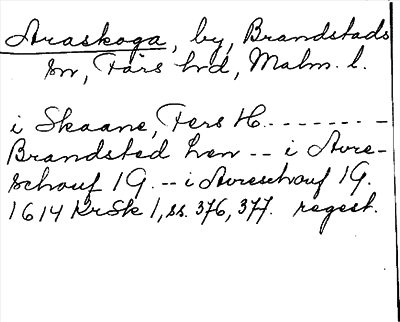 Araskoga, by, Brandstads
sn, Färs hd, Malm. l.
i Skaane, Fers H. --------
Brandsted Len -- i Avre-
schouf 1 G. -- i Avreschouf 1 G.
1614 KrSk 1, ss. 376, 377. regest.